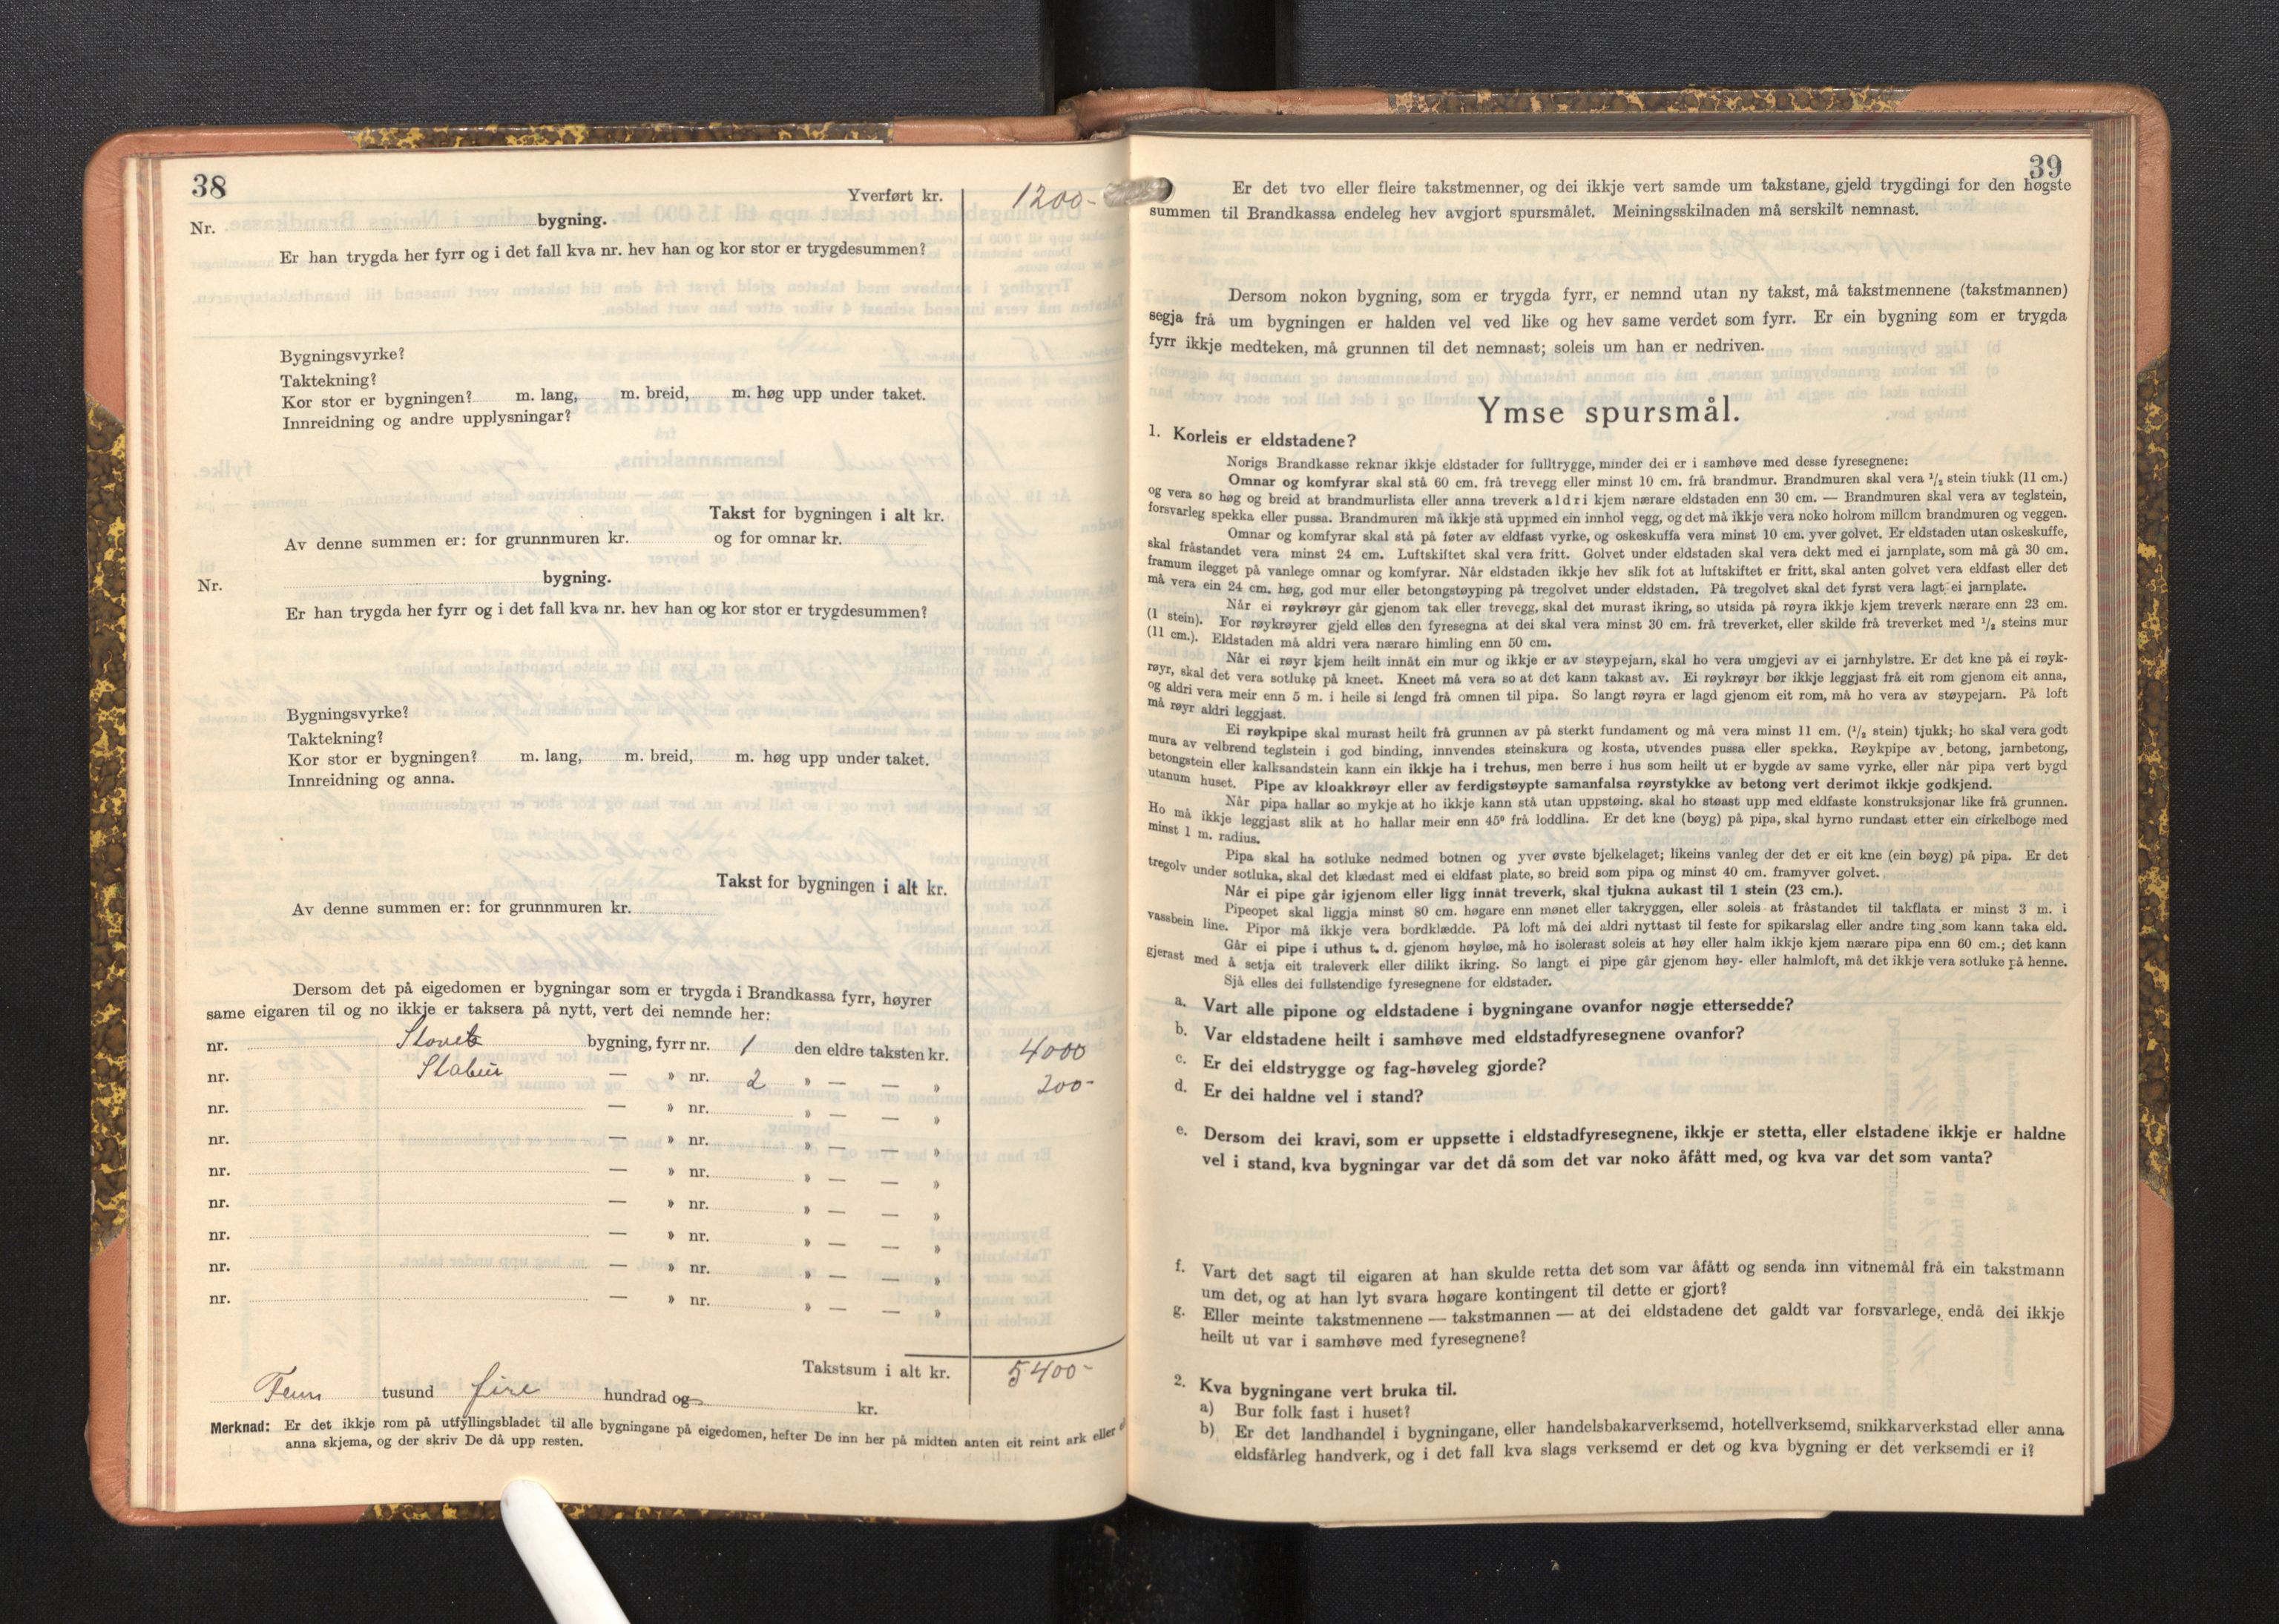 38
Yverført kr. 1200-
Nr. bygning.
Er han trygda her fyrr og i det fall kva nr. hev han og kor stor er trygdesummen?
Bygningsvyrke?
Taktekning?
Kor stor er bygningen? m. lang, m. breid, m. høg upp under taket.
Innreidning og andre upplysningar?
Takst for bygningen i alt kr.
Av denne summen er: for grunnmuren kr. og for omnar kr.
Nr. bygning.
Er han trygda her fyrr og i det fall kva nr. hev han og kor stor er trygdesummen?
Bygningsvyrke?
Taktekning?
Kor stor er bygningen? m. lang, m. breid, m. høg upp under taket.
Innreidning og anna.
Takst for bygningen i alt kr.
Av denne summen er: for grunnmuren kr.
Dersom det på eigedomen er bygningar som er trygda i Brandkassa fyrr, høyrer
same eigaren til og no ikkje er taksera på nytt, vert dei nemnde her:
nr. bygning, fyrr nr. 1 den eldre taksten kr. 4000
nr. Stabur — » nr. 2 » — — » 200-
nr. — » nr. » — — »
nr. — » nr. » — — »
nr. — » nr. » — — »
nr. — » nr. » — — »
nr. — » nr. » — — »
nr. — » nr. » — — »
nr. — » nr. » — — »
Takstsum i alt kr. 5400-
Fem tusund fire hundrad og — kr.
Merknad: Er det ikkje rom på utfyllingsbladet til alle bygningane på eigedomen, hefter De inn her på midten anten eit reint ark eller
anna skjema, og der skriv De då upp resten.
39
Er det tvo eller fleire takstmenner, og dei ikkje vert samde um takstane, gjeld trygdingi for den høgste
summen til Brandkassa endeleg hev avgjort spursmålet. Meiningsskilnaden må serskilt nemnast.
Dersom nokon bygning, som er trygda fyrr, er nemnd utan ny takst, må takstmennene (takstmannen)
segja frå um bygningen er halden vel ved like og hev same verdet som fyrr. Er ein bygning som er trygda
fyrr ikkje medteken, må grunnen til det nemnast; soleis um han er nedriven.
Ymse spursmål.
1. Korleis er eldstadene?
Norigs Brandkasse reknar ikkje eldstader for fulltrygge, minder dei er i samhøve med desse fyresegnene:
Omnar og komfyrar skal stå 60 cm. frå trevegg eller minst 10 cm. frå brandmur. Brandmuren skal vera 1/2 stein tjukk (11 cm.)
og vera so høg og breid at brandmurlista eller anna treverk aldri kjem nærare eldstaden enn 30 cm. — Brandmuren skal vera av teglstein,
forsvarleg spekka eller pussa. Brandmuren må ikkje stå uppmed ein innhol vegg, og det må ikkje vera noko holrom millom brandmuren og veggen.
Omnar og komfyrar skal stå på føter av eldfast vyrke, og oskeskuffa vera minst 10 cm. yver golvet. Er eldstaden utan oskeskuffe,
skal fråstandet vera minst 24 cm. Luftskiftet skal vera fritt. Golvet under eldstaden skal vera dekt med ei jarnplate, som må gå 30 cm.
framum ilegget på vanlege omnar og komfyrar. Når eldstaden ikkje hev slik fot at luftskiftet er fritt, skal anten golvet vera eldfast eller det
må vera ein 24 cm. høg, god mur eller betongstøyping på tregolvet under eldstaden. På tregolvet skal det fyrst vera lagt ei jarnplate.
Når ei røykrøyr går gjenom tak eller trevegg, skal det murast ikring, so utsida på røyra ikkje kjem treverk nærare enn 23 cm.
(1 stein). For røykrøyrer gjeld elles den fyresegna at dei skal vera minst 30 cm. frå treverket, eller skilde frå treverket med 1/2 steins mur
(11 cm.). Eldstaden må aldri vera nærare himling enn 50 cm.
Når ei røyr kjem heilt innåt ein mur og ikkje er av støypejarn, skal ho vera umgjevi av ei jarnhylstre. Er det kne på ei røyk-
røyr, skal det vera sotluke på kneet. Kneet må vera so at det kann takast av. Ei røykrøyr bør ikkje leggjast frå eit rom gjenom eit anna,
og aldri vera meir enn 5 m. i heile si lengd frå omnen til pipa. So langt røyra er lagd gjenom eit rom, må ho vera av støypejarn. På loft
må røyr aldri leggjast.
Ei røykpipe skal murast heilt frå grunnen av på sterkt fundament og må vera minst 11 cm. (1/2 stein) tjukk; ho skal vera godt
mura av velbrend teglstein i god binding, innvendes steinskura og kosta, utvendes pussa eller spekka. Røykpipe av betong, jarnbetong,
betongstein eller kalksandstein kann ein ikkje ha i trehus, men berre i hus som heilt ut er bygde av same vyrke, eller når pipa vert bygd
utanum huset. Pipe av kloakkrøyr eller av ferdigstøypte samanfalsa røyrstykke av betong vert derimot ikkje godkjend.
Når pipa hallar so mykje at ho ikkje kann stå utan uppstøing, skal ho støast upp med eldfaste konstruksjonar like frå grunnen.
Ho må ikkje leggjast slik at ho hallar meir enn 45° frå loddlina. Er det kne (bøyg) på pipa, skal hyrno rundast etter ein cirkelboge med
minst 1 m. radius.
Pipa skal ha sotluke nedmed botnen og yver øvste bjelkelaget; likeins vanleg der det er eit kne (ein bøyg) på pipa. Er det
tregolv under sotluka, skal det klædast med ei eldfast plate, so breid som pipa og minst 40 cm. framyver golvet.
Når ei pipe går igjenom eller ligg innåt treverk, skal tjukna aukast til 1 stein (23 cm.).
Pipeopet skal liggja minst 80 cm. høgare enn mønet eller takryggen, eller soleis at fråstandet til takflata er minst 3 m. i
vassbein line. Pipor må ikkje vera bordklædde. På loft må dei aldri nyttast til feste for spikarslag eller andre ting som kann taka eld.
Går ei pipe i uthus t. d. gjenom høyloe, må ho isolerast soleis at høy eller halm ikkje kjem nærare pipa enn 60 cm.; det kann
gjerast med å setja eit traleverk eller dilikt ikring. So langt ei pipe går gjenom høy- eller halmloft, må det ikkje vera sotluke på henne.
Sjå elles dei fullstendige fyresegnene for eldstader.
a. Vart alle pipone og eldstadene i bygningane ovanfor nøgje ettersedde?
b. Var eldstadene heilt i samhøve med eldstadfyresegnene ovanfor?
c. Er dei eldstrygge og fag-høveleg gjorde?
d. Er dei haldne vel i stand?
e. Dersom dei kravi, som er uppsette i eldstadfyresegnene, ikkje er stetta, eller elstadene ikkje er haldne
vel i stand, kva bygningar var det då som det var noko åfått med, og kva var det som vanta?
f. Vart det sagt til eigaren at han skulde retta det som var åfått og senda inn vitnemål frå ein takstmann
um det, og at han lyt svara høgare kontingent til dette er gjort?
g. Eller meinte takstmennene — takstmannen — at dei eldstadene det galdt var forsvarlege, endå dei ikkje
heilt ut var i samhøve med fyresegnene?
2. Kva bygningane vert bruka til.
a) Bur folk fast i huset?
b) Er det landhandel i bygningane, eller handelsbakarverksemd, hotellverksemd, snikkarverkstad eller anna
eldsfårleg handverk, og i det fall kva slags verksemd er det og kva bygning er det verksemdi er i?